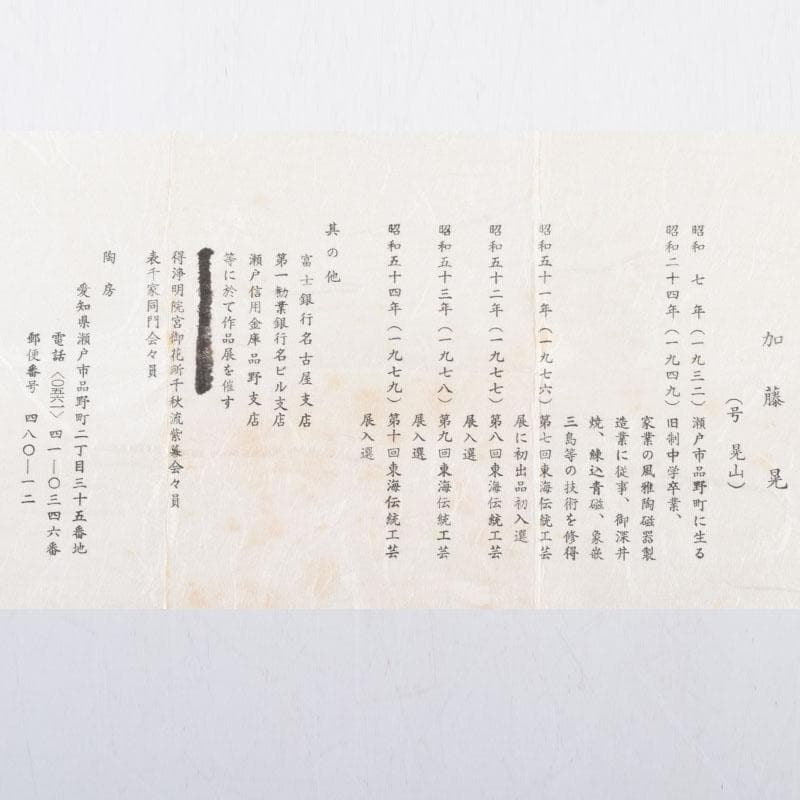 加藤晃
（号 晃山）
昭和 七 年（一九三二）瀬戸市品野町に生る
昭和二十四年（一九四九）旧制中学卒業、
家業の風雅陶磁器製
造業に従事、御深井
焼、練込青磁、象嵌
三島等の技術を修得
昭和五十一年（一九七六）第七回東海伝統工芸
展に初出品初入選
昭和五十二年（一九七七）第八回東海伝統工芸
展入選
昭和五十三年（一九七八）第九回東海伝統工芸
展入選
昭和五十四年（一九七九）第十回東海伝統工芸
展入選
其の他
富士銀行名古屋支店
第一勧業銀行名ビル支店
瀬戸信用金庫品野支店
等に於て作品展を催す
得浄明院宮御花所千秋流紫葉会々員
表千家同門会々員
陶房
愛知県瀬戸市品野町二丁目三十五番地
電話〈〇五六一〉四一―〇三四六番
郵便番号 四八〇―一二